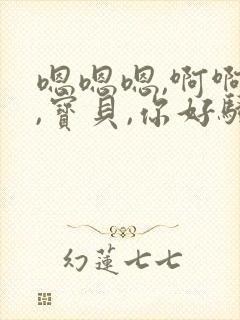 嗯嗯嗯,啊啊
,寳貝,你好騒
幻蓮七七